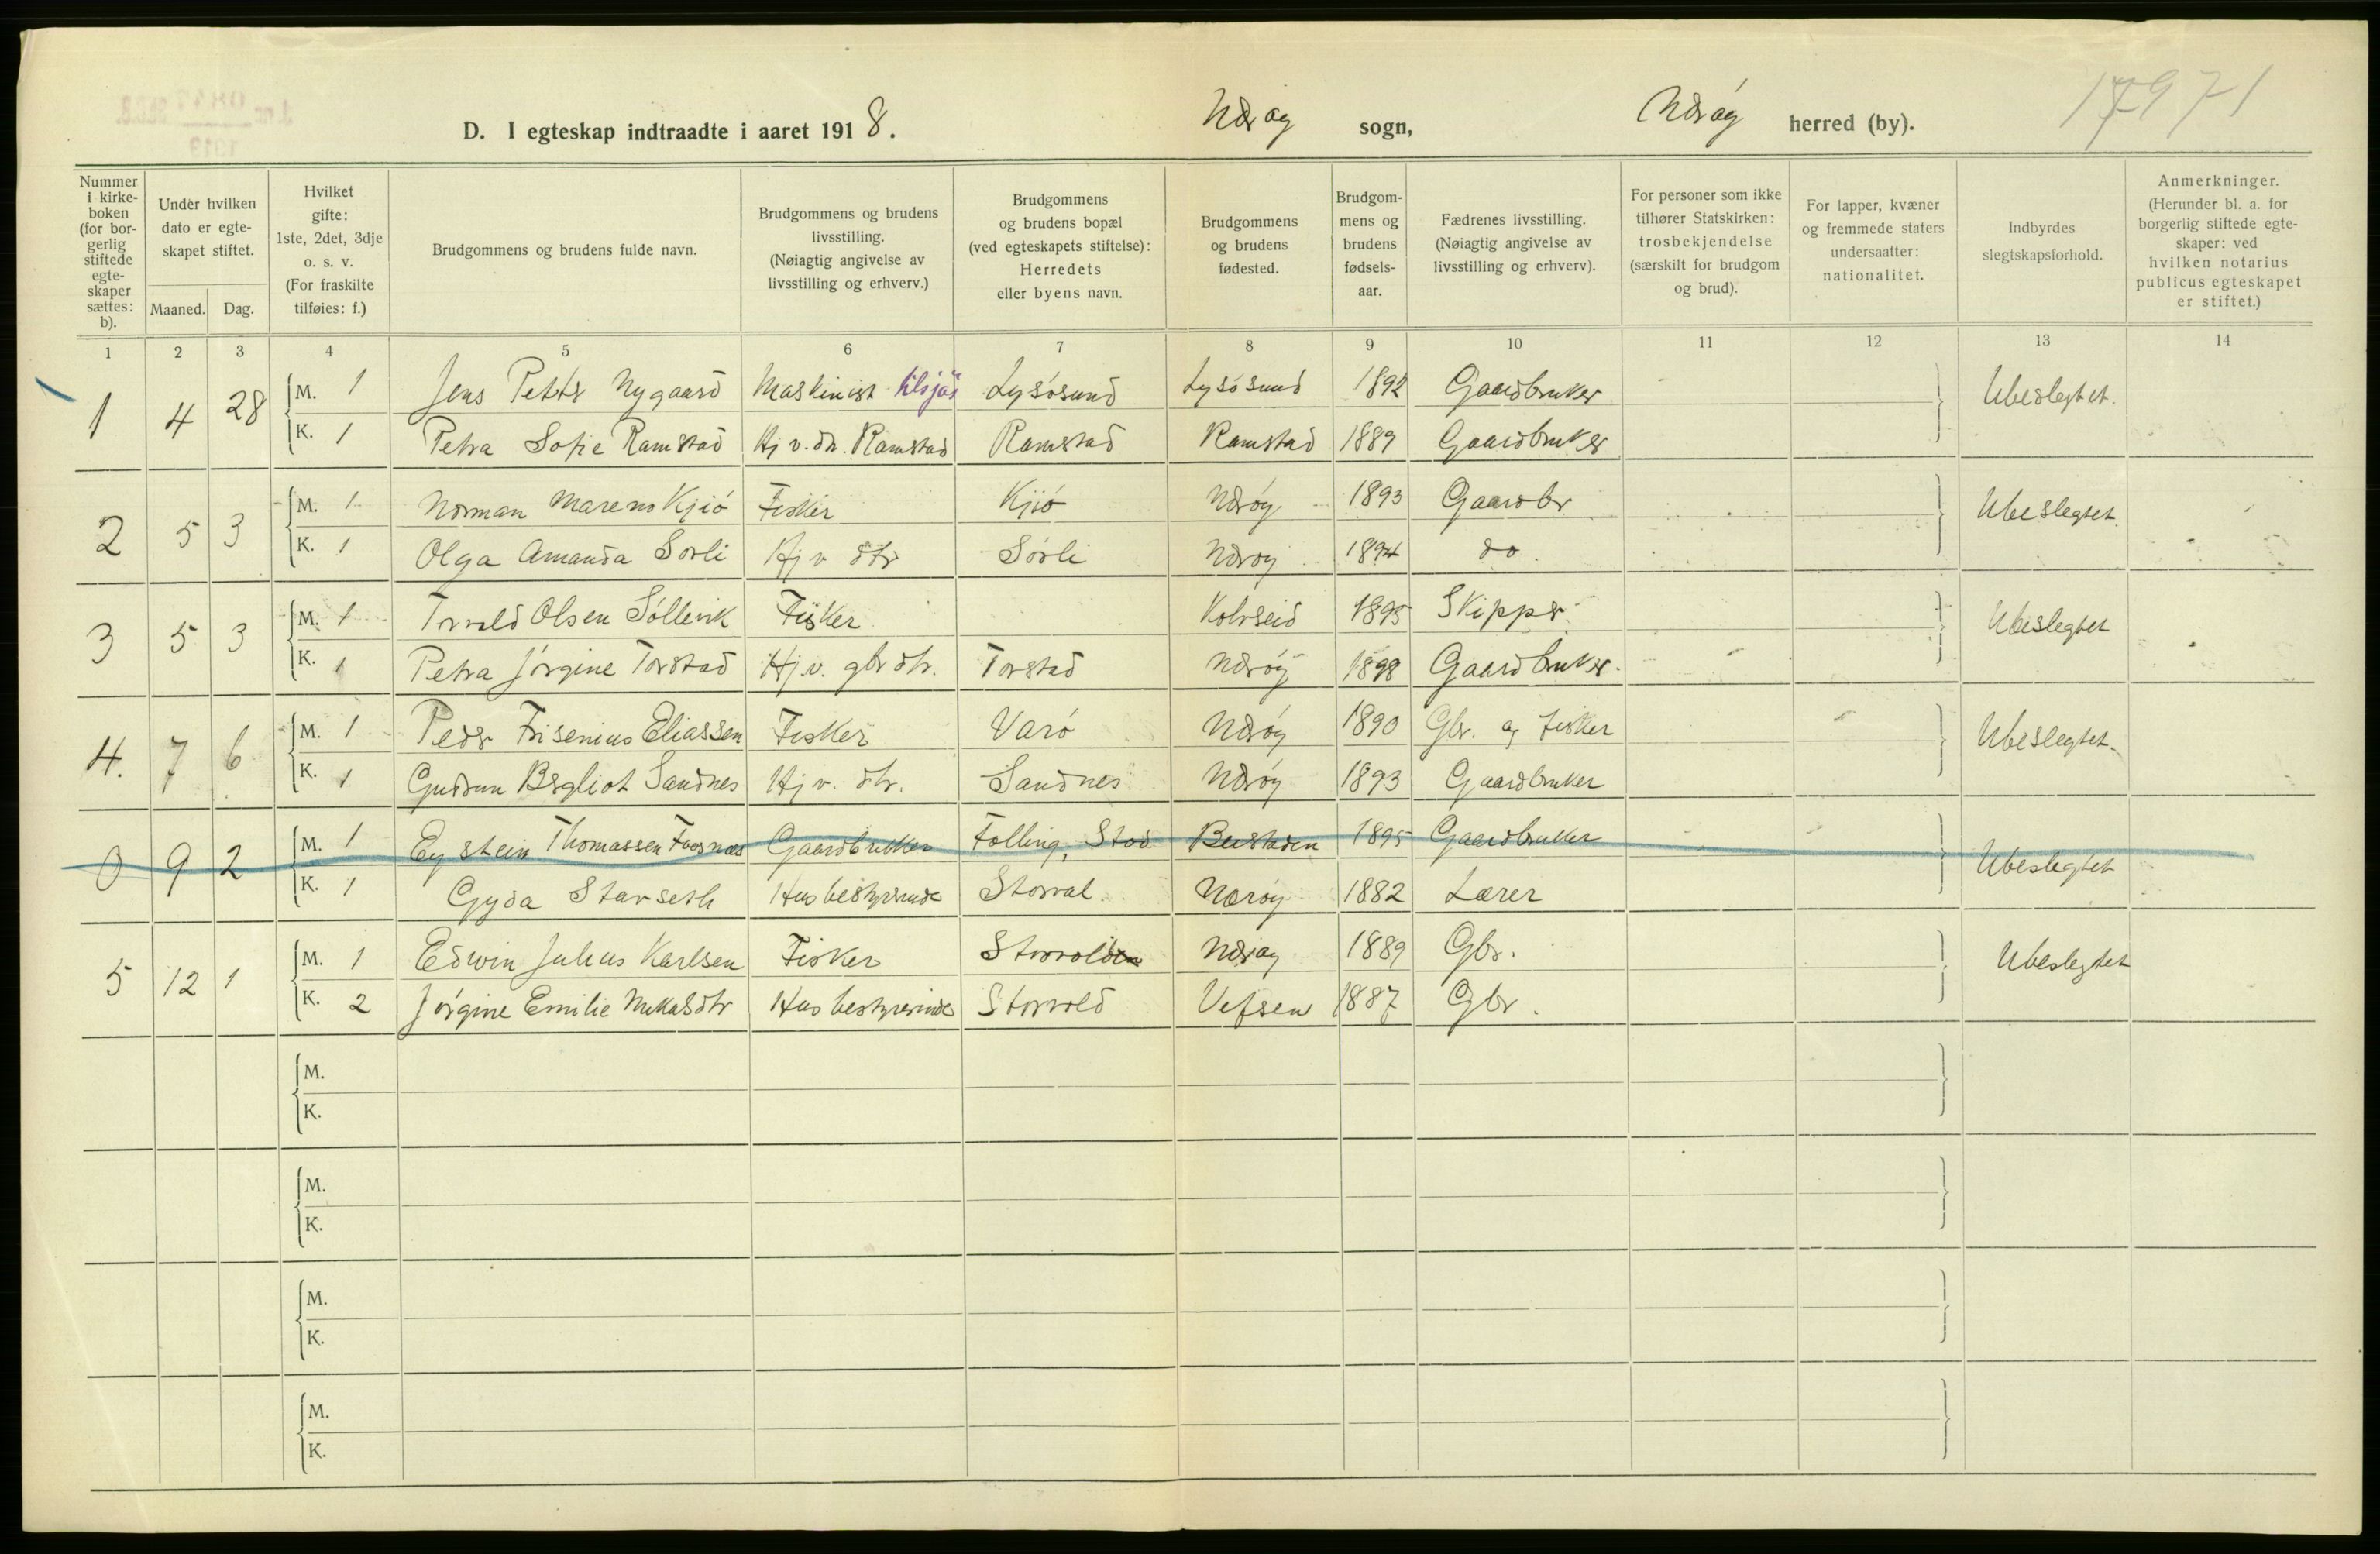 D. I egteskap indtraadte i aaret 1918. Nærøy sogn, Nærøy herred (by). 17971
Nummer i kirke-boken (for bor-gerlig stiftede egte-skaper sættes: b).
Under hvilken dato er egte-skapet stiftet.
Maaned. Dag.
Hvilket gifte: 1ste, 2det, 3dje o. s. v. (For fraskilte tilføies: f.)
Brudgommens og brudens fulde navn.
Brudgommens og brudens livsstilling. (Nøiagtig angivelse av livsstilling og erhverv.)
Brudgommens og brudens bopæl (ved egteskapets stiftelse): Herredets eller byens navn.
Brudgommens og brudens fødested.
Brudgom-mens og brudens fødsels-aar.
Fædrenes livsstilling. (Nøiagtig angivelse av livsstilling og erhverv).
For personer som ikke tilhører Statskirken: trosbekjendelse (særskilt for brudgom og brud).
For lapper, kvæner og fremmede staters undersaatter: nationalitet.
Indbyrdes slegtskapsforhold.
Anmerkninger. (Herunder bl. a. for borgerlig stiftede egte-skaper: ved hvilken notarius publicus egteskapet er stiftet.)
1 2 3 4 5 6 7 8 9 10 11 12 13 14
1 4 28 M. 1 Jens Petter Nygaard Maskinist tilsjøs Lysøsund Lysøsund 1892 Gaardbruker Ubeslegtet.
K. 1 Petra Sofie Ramstad Hj v. dtr. Ramstad Ramstad Ramstad 1889 Gaardbruker
2 5 3 M. 1 Norman Mareno Kjiø Fisker Kjiø Nærøy 1893 Gaardbr Ubeslegtet.
K. 1 Olga Amanda Sørli Hj v dtr Sørli Nærøy 1894 do.
3 5 3 M. 1 Torvald Olsen Søllevik Fisker Kolvreid 1895 Skipper Ubeslegtet
K. 1 Petra Jørgine Torstad Hj.v. gbr dtr. Torstad Nærøy 1898 Gaardbruker.
4. 7 6 M. 1 Peder Frisenius Eliassen Fisker Varø Nærøy 1890 Gbr. og Fisker Ubeslegtet.
K. 1 Gudrun Bergliot Sandnes Hj v. dtr. Sandnes Nærøy 1893 Gaardbruker
0 9 2 M. 1 Eystein Thomassen Fosnæs Gaardbruker Følling, Stod Beistaden 1895 Gaardbruker Ubeslegtet
K. 1 Gyda Starseth Husbestyrerinde Storval Nærøy 1882 Lærer
5 12 1 M. 1 Edwin Julius Karlsen Fisker Storvolden Nærøy 1889 Gbr. Ubeslegtet
K. 2 Jørgine Emilie Mikalsdtr Husbestyrerinde Storvold Vefsen 1887 Gbr.
M.
K.
M.
K.
M.
K.
M.
K.